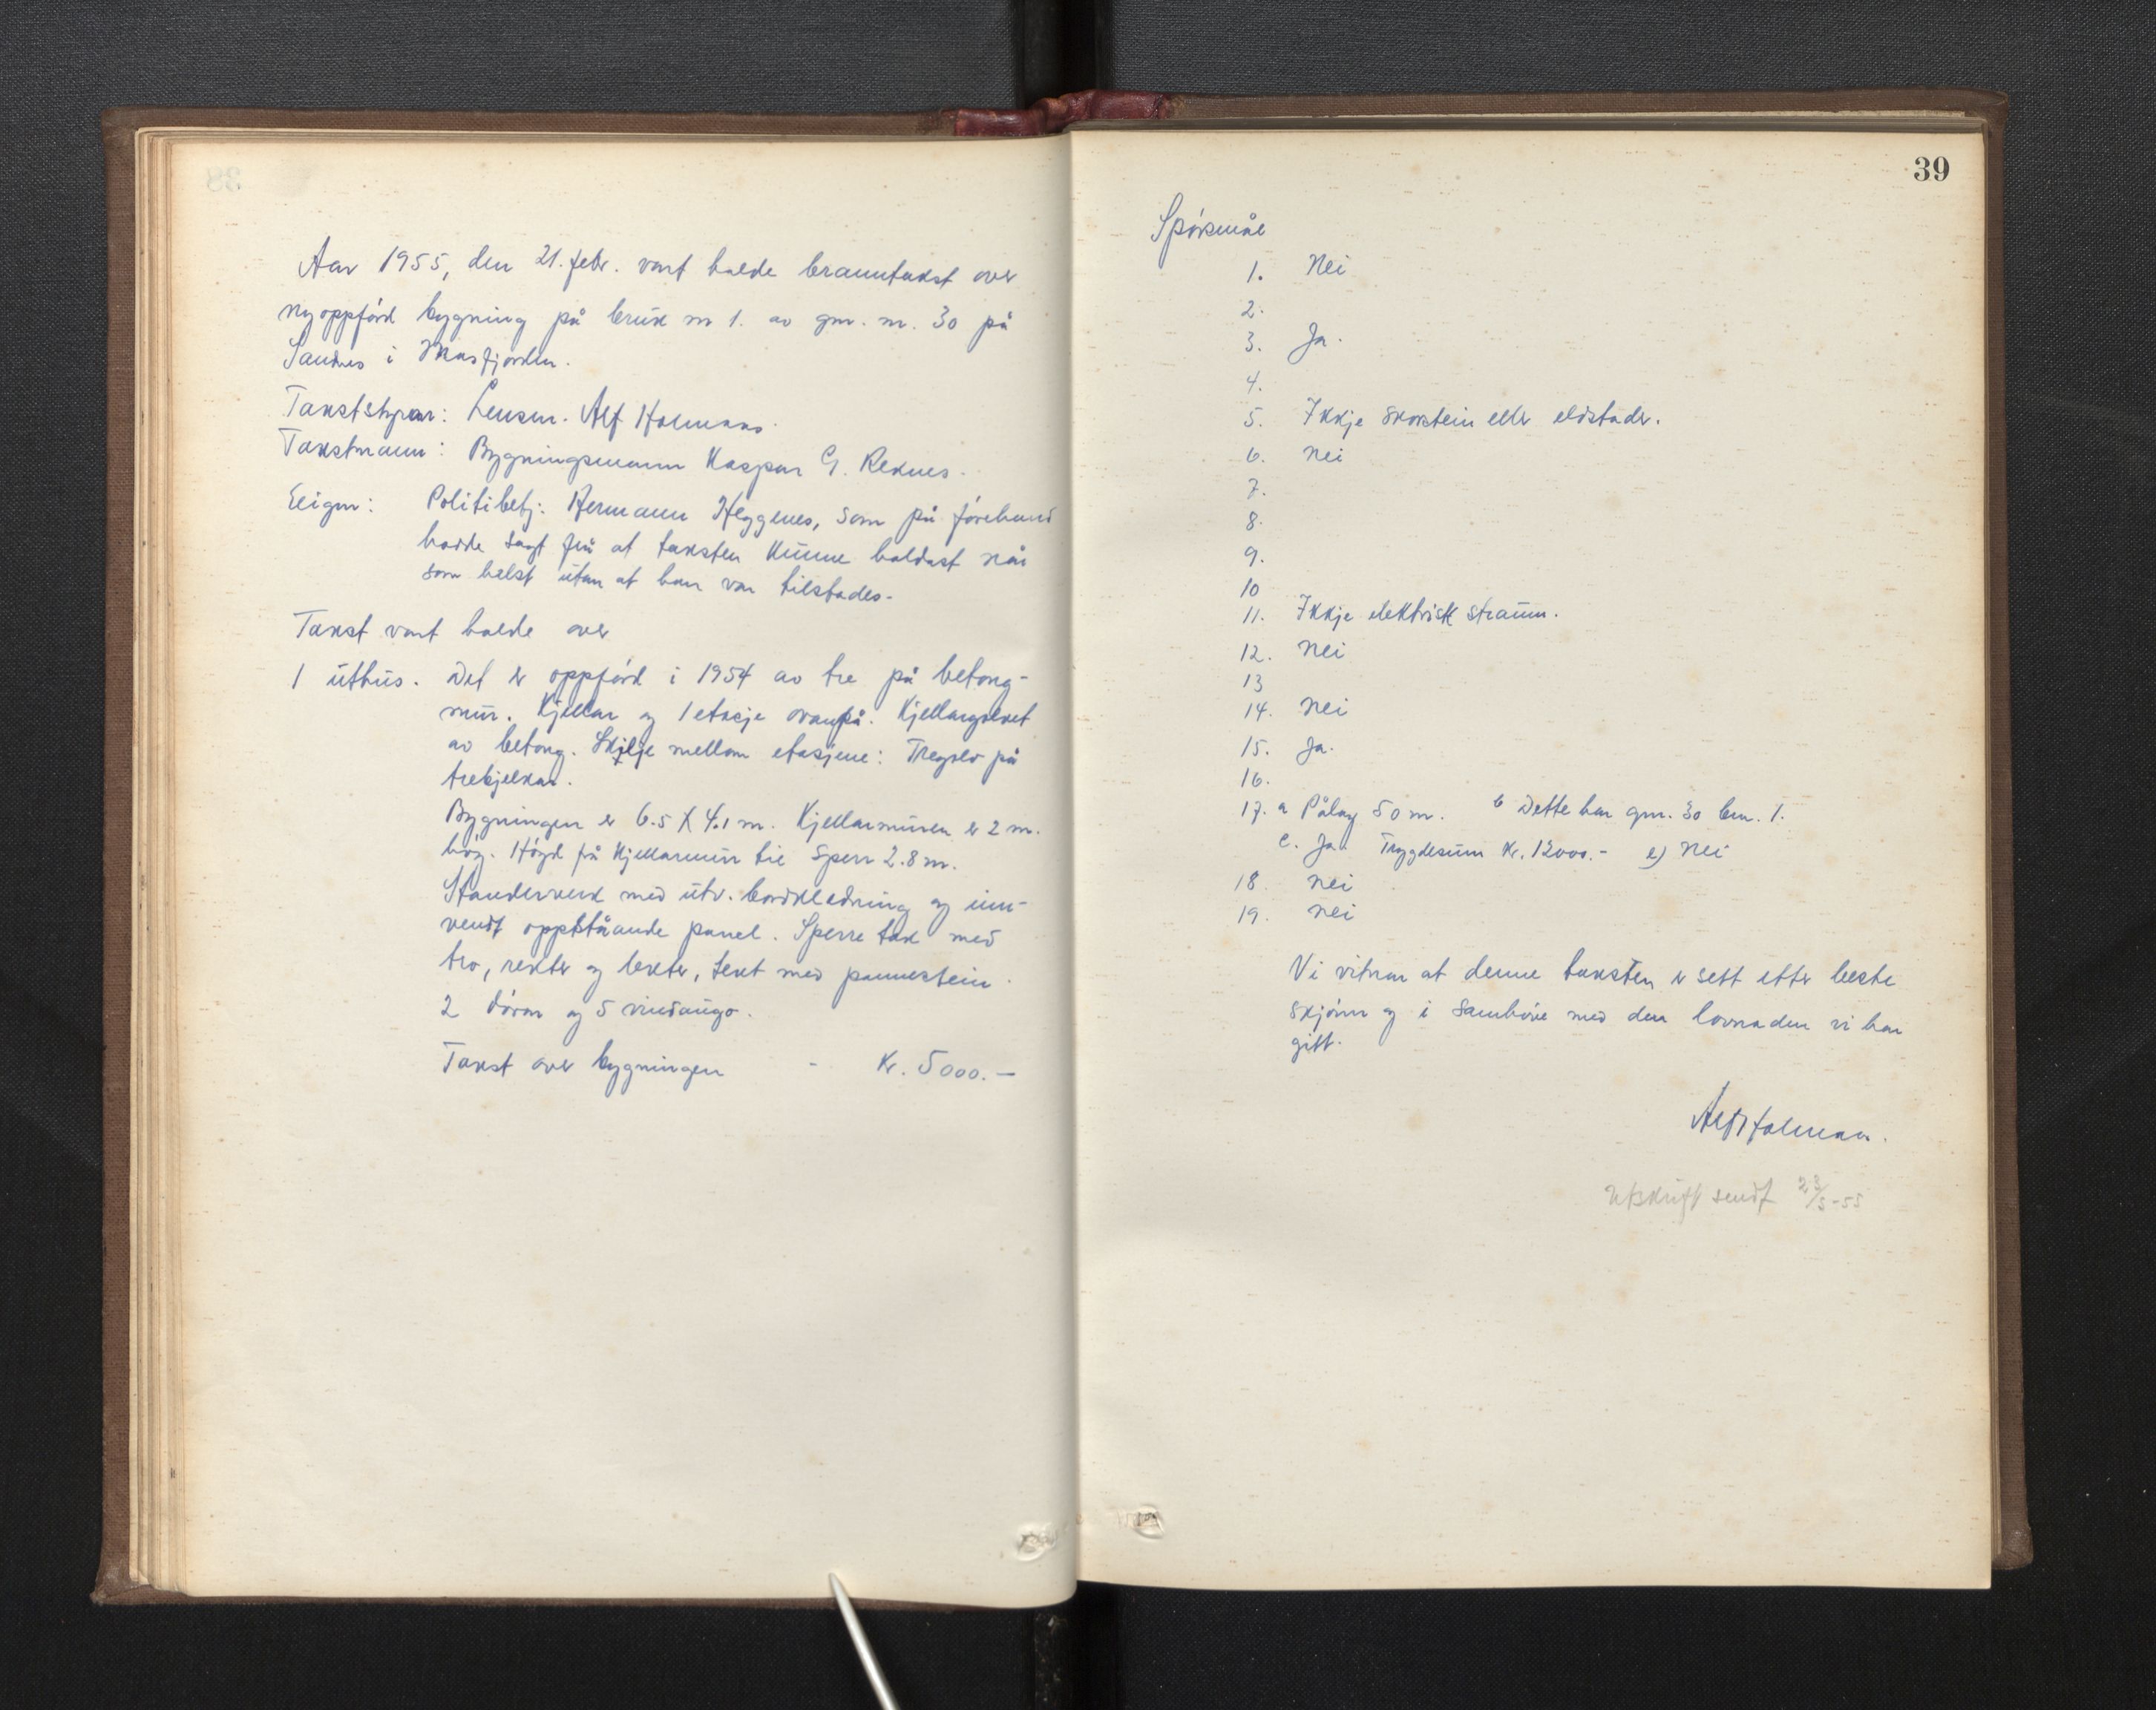 Aar 1955, den 21. febr. vart halde branntakst over
nyoppförd bygning på bruk nr 1. av gnr. nr. 30 på
Sandnes i Masfjorden.
Takststyrar: Lensm. Alf Holmaas.
Takstmann: Bygningsmann Kaspar G. Reknes.
Eigar: Politibetj: Hermann Heggenes, som på förehand
hadde sagt frå at taksten kunne haldast når
som helst utan at han var tilstades.
Takst vart halde over
1 uthus. Det er oppförd i 1954 av tre på betong-
mur. Kjellar og 1 etasje ovanpå. Kjellargolvet
av betong. Skilje mellom etasjene: Tregolv på
trebjelkar.
Bygningen er 6.5 X 4.1 m. Kjellarmuren er 2 m.
høg. Högd frå kjellarmur til sperr 2.8 m.
Standerverk med utv. bordkledning og inn-
vendt oppståande panel. Sperre tak med
tro, rekter og lekter, tekt med pannestein.
2 dörar og 5 vindaugo.
Takst over bygningen - Kr. 5000.-
39
Spörsmål
1. Nei
2.
3. Ja.
4.
5. Ikkje skorstein eller eldstader.
6. nei
7.
8.
9.
10
11. Ikkje elektrisk straum.
12. nei
13
14. nei
15. Ja.
16.
17. a Pålag 50 m. b Dette har gnr. 30 bnr. 1.
c. Ja. Trygdesum kr. 12000.- e) nei
18. nei
19. nei
Vi vitnar at denne taksten er sett etter beste
skjönn og i samhöve med den lovnaden vi har
gitt.
Alf Holmaas.
Utskrift sendt 23/5-55